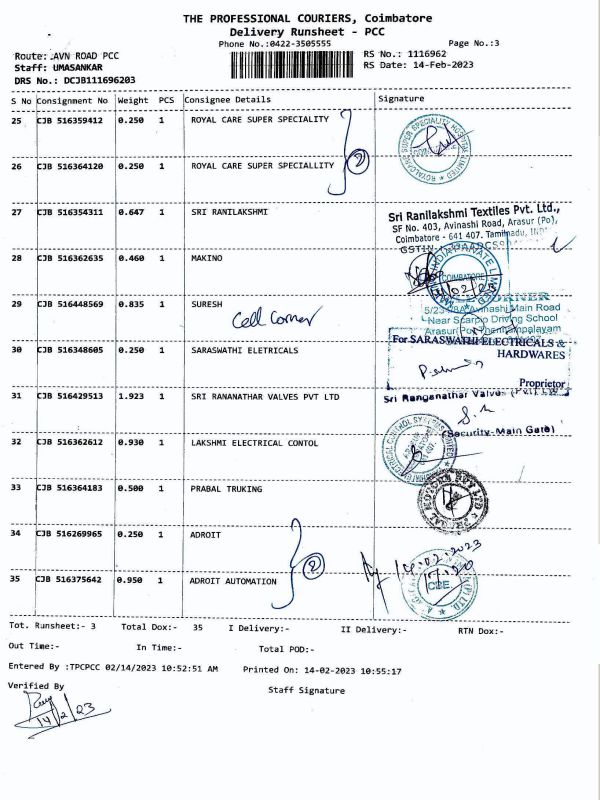 THE PROFESSIONAL COURIERS, Coimbatore
Delivery Runsheet - PCC
Phone No.:0422-3505555 Page No.:3
Route: AVN ROAD PCC RS No.: 1116962
Staff: UMASANKAR RS Date: 14-Feb-2023
DRS No.: DCJB111696203
S No Consignment No Weight PCS Consignee Details Signature
25 CJB 516359412 0.250 1 ROYAL CARE SUPER SPECIALITY
26 CJB 516364120 0.250 1 ROYAL CARE SUPER SPECIALLITY 2
27 CJB 516354311 0.647 1 SRI RANILAKSHMI
Sri Ranilakshmi Textiles Pvt. Ltd.,
SF No. 403, Avinashi Road, Arasur (Po),
Coimbatore - 641 407. Tamilnadu,
28 CJB 516362635 0.460 1 MAKINO
COIMBATORE
29 CJB 516448569 0.835 1 SURESH
Cell Corner
Avinashi Main Road
Near Scarpio Driving School
Arasur(Po), Thennampalayam
30 CJB 516348605 0.250 1 SARASWATHI ELETRICALS
For SARASWATHI ELECTRICALS &
HARDWARES
Proprietor
31 CJB 516429513 1.923 1 SRI RANANATHAR VALVES PVT LTD
Sri Ranganathar Valves (Pvt) Ltd
(Security-Main Gate)
32 CJB 516362612 0.930 1 LAKSHMI ELECTRICAL CONTOL
33 CJB 516364183 0.500 1 PRABAL TRUKING
34 CJB 516269965 0.250 1 ADROIT
2
14.02.2023
35 CJB 516375642 0.950 1 ADROIT AUTOMATION
CDE
Tot. Runsheet:- 3 Total Dox:- 35 I Delivery:- II Delivery:- RTN Dox:-
Out Time:- In Time:- Total POD:-
Entered By :TPCPCC 02/14/2023 10:52:51 AM Printed On: 14-02-2023 10:55:17
Verified By Staff Signature
14/2/23